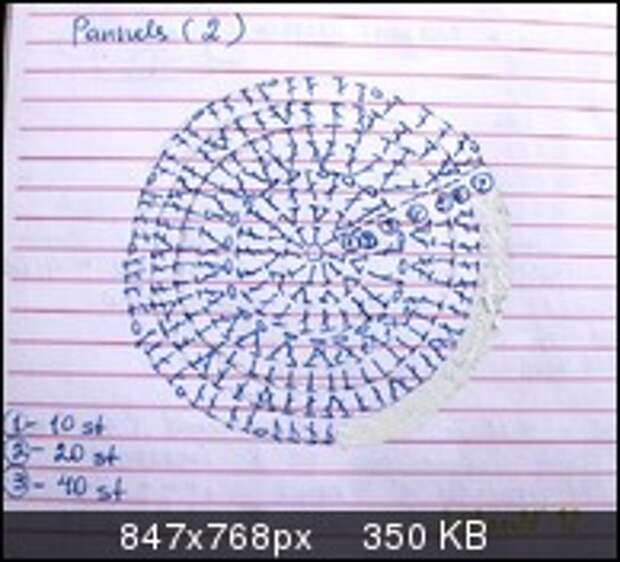 Pannels (2)
① - 10 st
② - 20 st
③ - 40 st
847x768px 350 KB